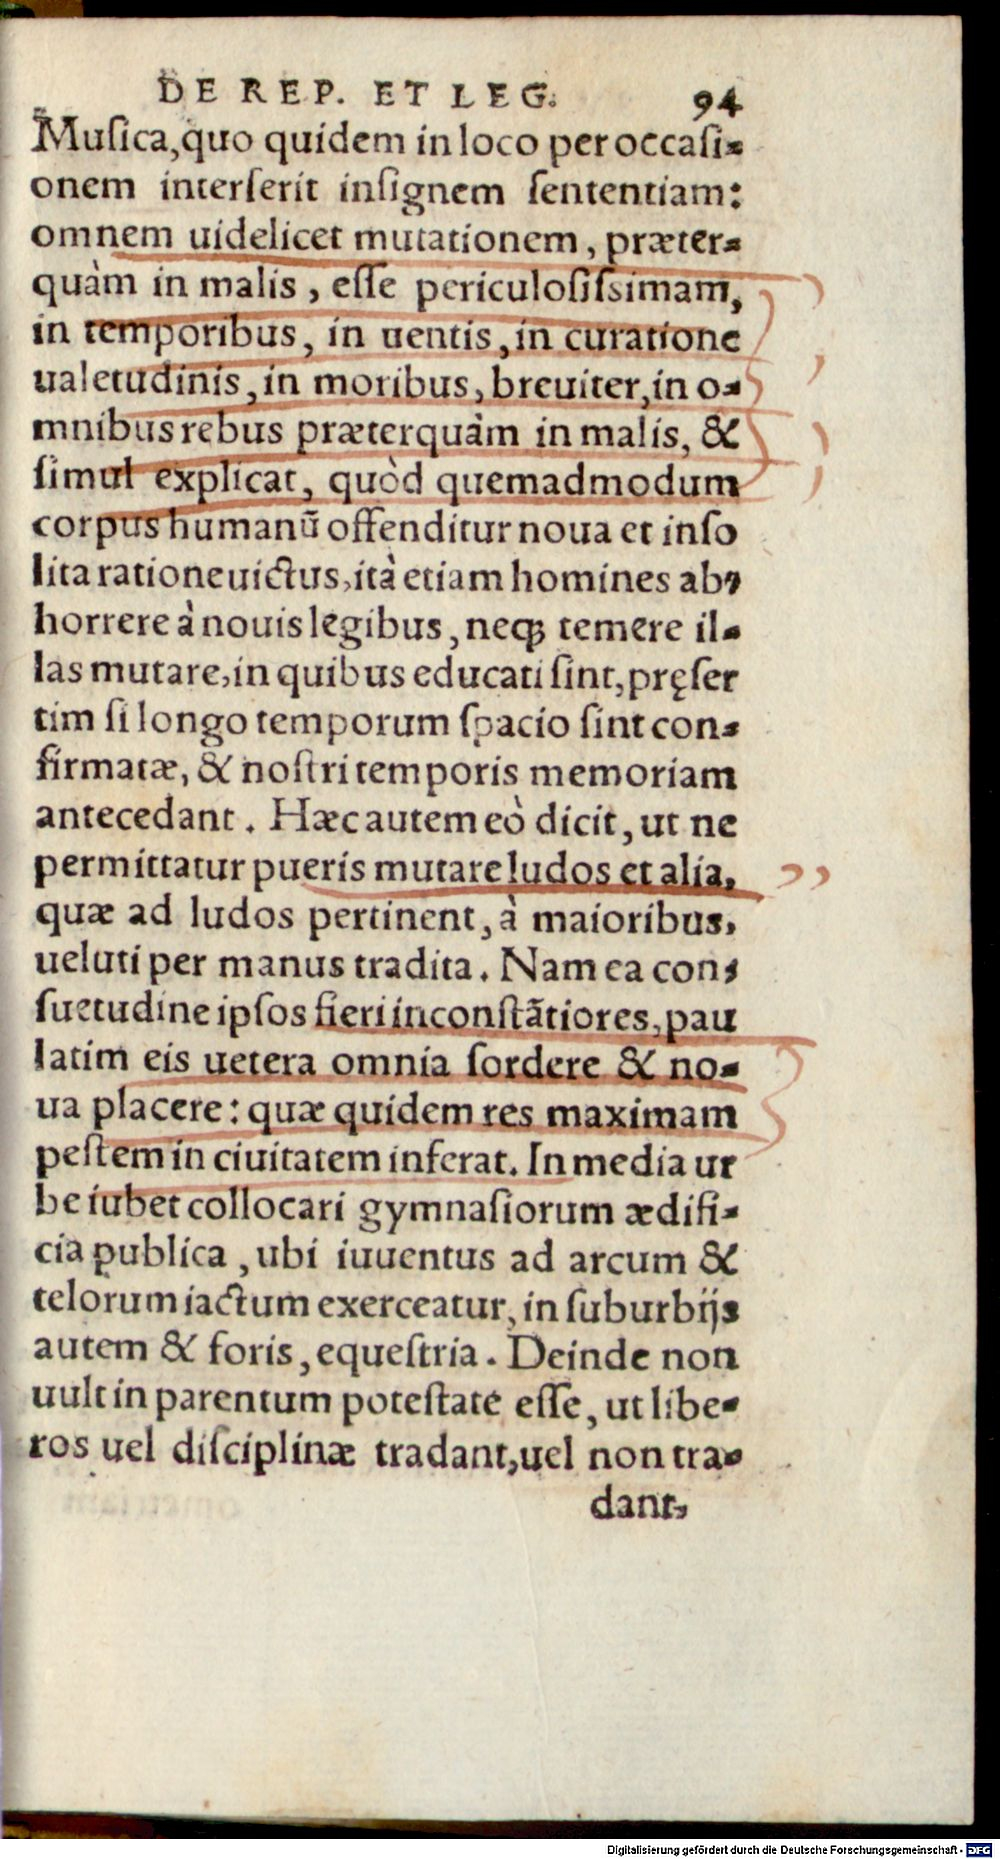 DE REP. ET LEG. 94
Muſica,quo quidem in loco per occaſi-
onem interſerit inſignem ſententiam:
omnem uidelicet mutationem, præter-
quàm in malis, eſſe periculoſiſsimam,
in temporibus, in uentis, in curatione
ualetudinis, in moribus, breuiter, in o-
mnibus rebus præterquàm in malis, &
ſimul explicat, quòd quemadmodum
corpus humanū offenditur noua et inſo
lita ratione uictus, ità etiam homines ab-
horrere à nouis legibus, neqꝫ temere il-
las mutare, in quibus educati ſint, pręſer
tim ſi longo temporum ſpacio ſint con-
firmatæ, & noſtri temporis memoriam
antecedant. Hæc autem eò dicit, ut ne
permittatur pueris mutare ludos et alia,
quæ ad ludos pertinent, à maioribus,
ueluti per manus tradita. Nam ea con-
ſuetudine ipſos fieri inconſtãtiores, pau
latim eis uetera omnia ſordere & no-
ua placere: quæ quidem res maximam
peſtem in ciuitatem inferat. In media ur
be iubet collocari gymnaſiorum ædifi-
cia publica, ubi iuuentus ad arcum &
telorum iactum exerceatur, in ſuburbijs
autem & foris, equeſtria. Deinde non
uult in parentum poteſtate eſſe, ut libe-
ros uel diſciplinæ tradant, uel non tra-
dant,
Digitalisierung gefördert durch die Deutsche Forschungsgemeinschaft - DFG